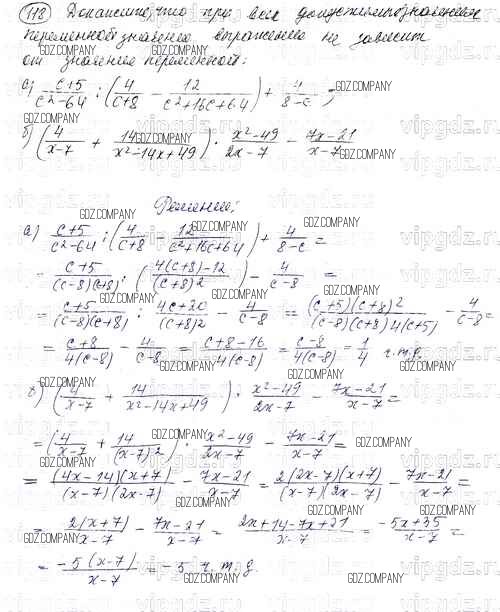 118 Докажите, что при всех допустимых значениях
переменной значение выражения не зависит
от значения переменной:
а) (c+5)/(c²-64) : (4/(c+8) - 12/(c²+16c+64)) + 4/(8-c) ;
б) (4/(x-7) + 14/(x²-14x+49)) · (x²-49)/(2x-7) - (7x-21)/(x-7)
Решение:
а) (c+5)/(c²-64) : (4/(c+8) - 12/(c²+16c+64)) + 4/(8-c) =
= (c+5)/((c-8)(c+8)) : ((4(c+8)-12)/(c+8)²) - 4/(c-8) =
= (c+5)/((c-8)(c+8)) : (4c+20)/(c+8)² - 4/(c-8) = ((c+5)(c+8)²)/((c-8)(c+8)4(c+5)) - 4/(c-8) =
= (c+8)/(4(c-8)) - 4/(c-8) = (c+8-16)/(4(c-8)) = (c-8)/(4(c-8)) = 1/4 ч.т.д.
б) (4/(x-7) + 14/(x²-14x+49)) · (x²-49)/(2x-7) - (7x-21)/(x-7) =
= (4/(x-7) + 14/(x-7)²) · (x²-49)/(2x-7) - (7x-21)/(x-7) =
= ((4x-14)(x+7))/((x-7)(2x-7)) - (7x-21)/(x-7) = (2(2x-7)(x+7))/((x-7)(2x-7)) - (7x-21)/(x-7) =
= 2(x+7)/(x-7) - (7x-21)/(x-7) = (2x+14-7x+21)/(x-7) = (-5x+35)/(x-7) =
= -5(x-7)/(x-7) = -5 ч.т.д.
GDZ.COMPANY
vipgdz.com